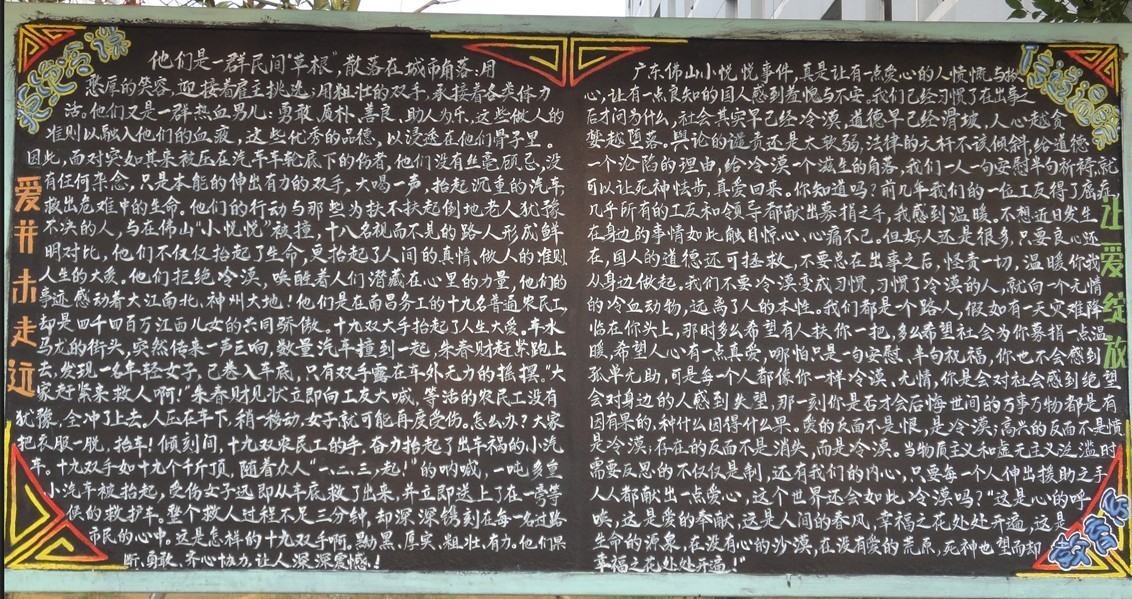 拒绝冷漠
爱并未走远
他们是一群民间“草根”,散落在城市角落:用
憨厚的笑容,迎接着雇主挑选;用粗壮的双手,承接着各类体力
活。他们又是一群热血男儿:勇敢、质朴、善良、助人为乐,这些做人的
准则以融入他们的血液,这些优秀的品德,以浸透在他们骨子里。
因此,面对突如其来被压在汽车车轮底下的伤者,他们没有丝毫顾忌,没
有任何杂念,只是本能的伸出有力的双手,大喝一声,抬起沉重的汽车,
救出危难中的生命。他们的行动与那些为扶不扶起倒地老人犹豫
不决的人,与在佛山“小悦悦”被撞,十八名视而不见的路人形成鲜
明对比,他们不仅仅抬起了生命,更抬起了人间的真情,做人的准则
人生的大爱。他们拒绝冷漠,唤醒着人们潜藏在心里的力量,他们的
事迹感动着大江南北,神州大地!他们是在南昌务工的十九名普通农民工,
却是四千四百万江西儿女的共同骄傲。十九双大手抬起了人生大爱。车水
马龙的街头,突然传来一声巨响,数量汽车撞到一起,朱春财赶紧跑上
去,发现一名年轻女子,已卷入车底,只有双手露在车外无力的摇摆。“大
家赶紧来救人啊!”朱春财见状立即向工友大喊,等活的农民工没有
犹豫,全冲了上去。人压在车下,稍一移动,女子就可能再度受伤。怎么办?大家
把衣服一脱,抬车!倾刻间,十九双农民工的手,奋力抬起了出车祸的小汽
车。十九双手如十九个千斤顶,随着众人“一、二、三,起!”的呐喊,一吨多重
小汽车被抬起,受伤女子迅即从车底救了出来,并立即送上了在一旁等
候的救护车。整个救人过程不足三分钟,却深深镌刻在每一名过路
市民的心中。这是怎样的十九双手啊,黝黑、厚实、粗壮、有力。他们果
断、勇敢、齐心协力,让人深深震憾!
广东佛山小悦悦事件,真是让有一点爱心的人愤慌与担
心,让有一点良知的国人感到羞愧与不安。我们已经习惯了在出事之
后才问为什么,社会其实早已经冷漠,道德早已经滑坡,人心越贪
婪越堕落。舆论的谴责还是太软弱,法律的天杆不该倾斜,给道德
一个沦陷的理由,给冷漠一个滋生的角落,我们一人一句安慰半句祈祷,就
可以让死神怯步,真爱回来。你知道吗?前几年我们的一位工友得了癌症,
几乎所有的工友和领导都献出募捐之手,我感到温暖。不想近日发生
在身边的事情如此触目惊心,心痛不已。但好人还是很多,只要良心还
在,国人的道德还可拯救,不要总在出事之后,怪责一切,温暖你我
从身边做起。我们不要冷漠变成习惯,习惯了冷漠的人,就向一个无情
的冷血动物,远离了人的本性。我们都是个路人,假如有一天灾难降
临在你头上,那时多么希望有人扶你一把,多么希望社会为你募捐一点温
暖,希望人心有一点真爱,哪怕只是一句安慰,半句祝福,你也不会感到
孤单无助,可是每个人都像你一样冷漠、无情,你是会对社会感到绝望
会对身边的人感到失望,那一刻你是否才会后悔世间的万事万物都是有
因有果的,种什么因得什么果。爱的反面不是恨,是冷漠;高兴的反面不是愤
是冷漠;存在的反面不是消失,而是冷漠。当物质主义和虚无主义泛滥时
需要反思的不仅仅是制,还有我们的内心,只要每一个人伸出援助之手,
人人都献出一点爱心,这个世界还会如此冷漠吗?“这是心的呼
唤,这是爱的奉献,这是人间的春风,幸福之花处处开遍,这是
生命的源泉,在没有心的沙漠,在没有爱的荒原,死神也望而却
幸福之花处处开遍!”
让爱绽放
教育部